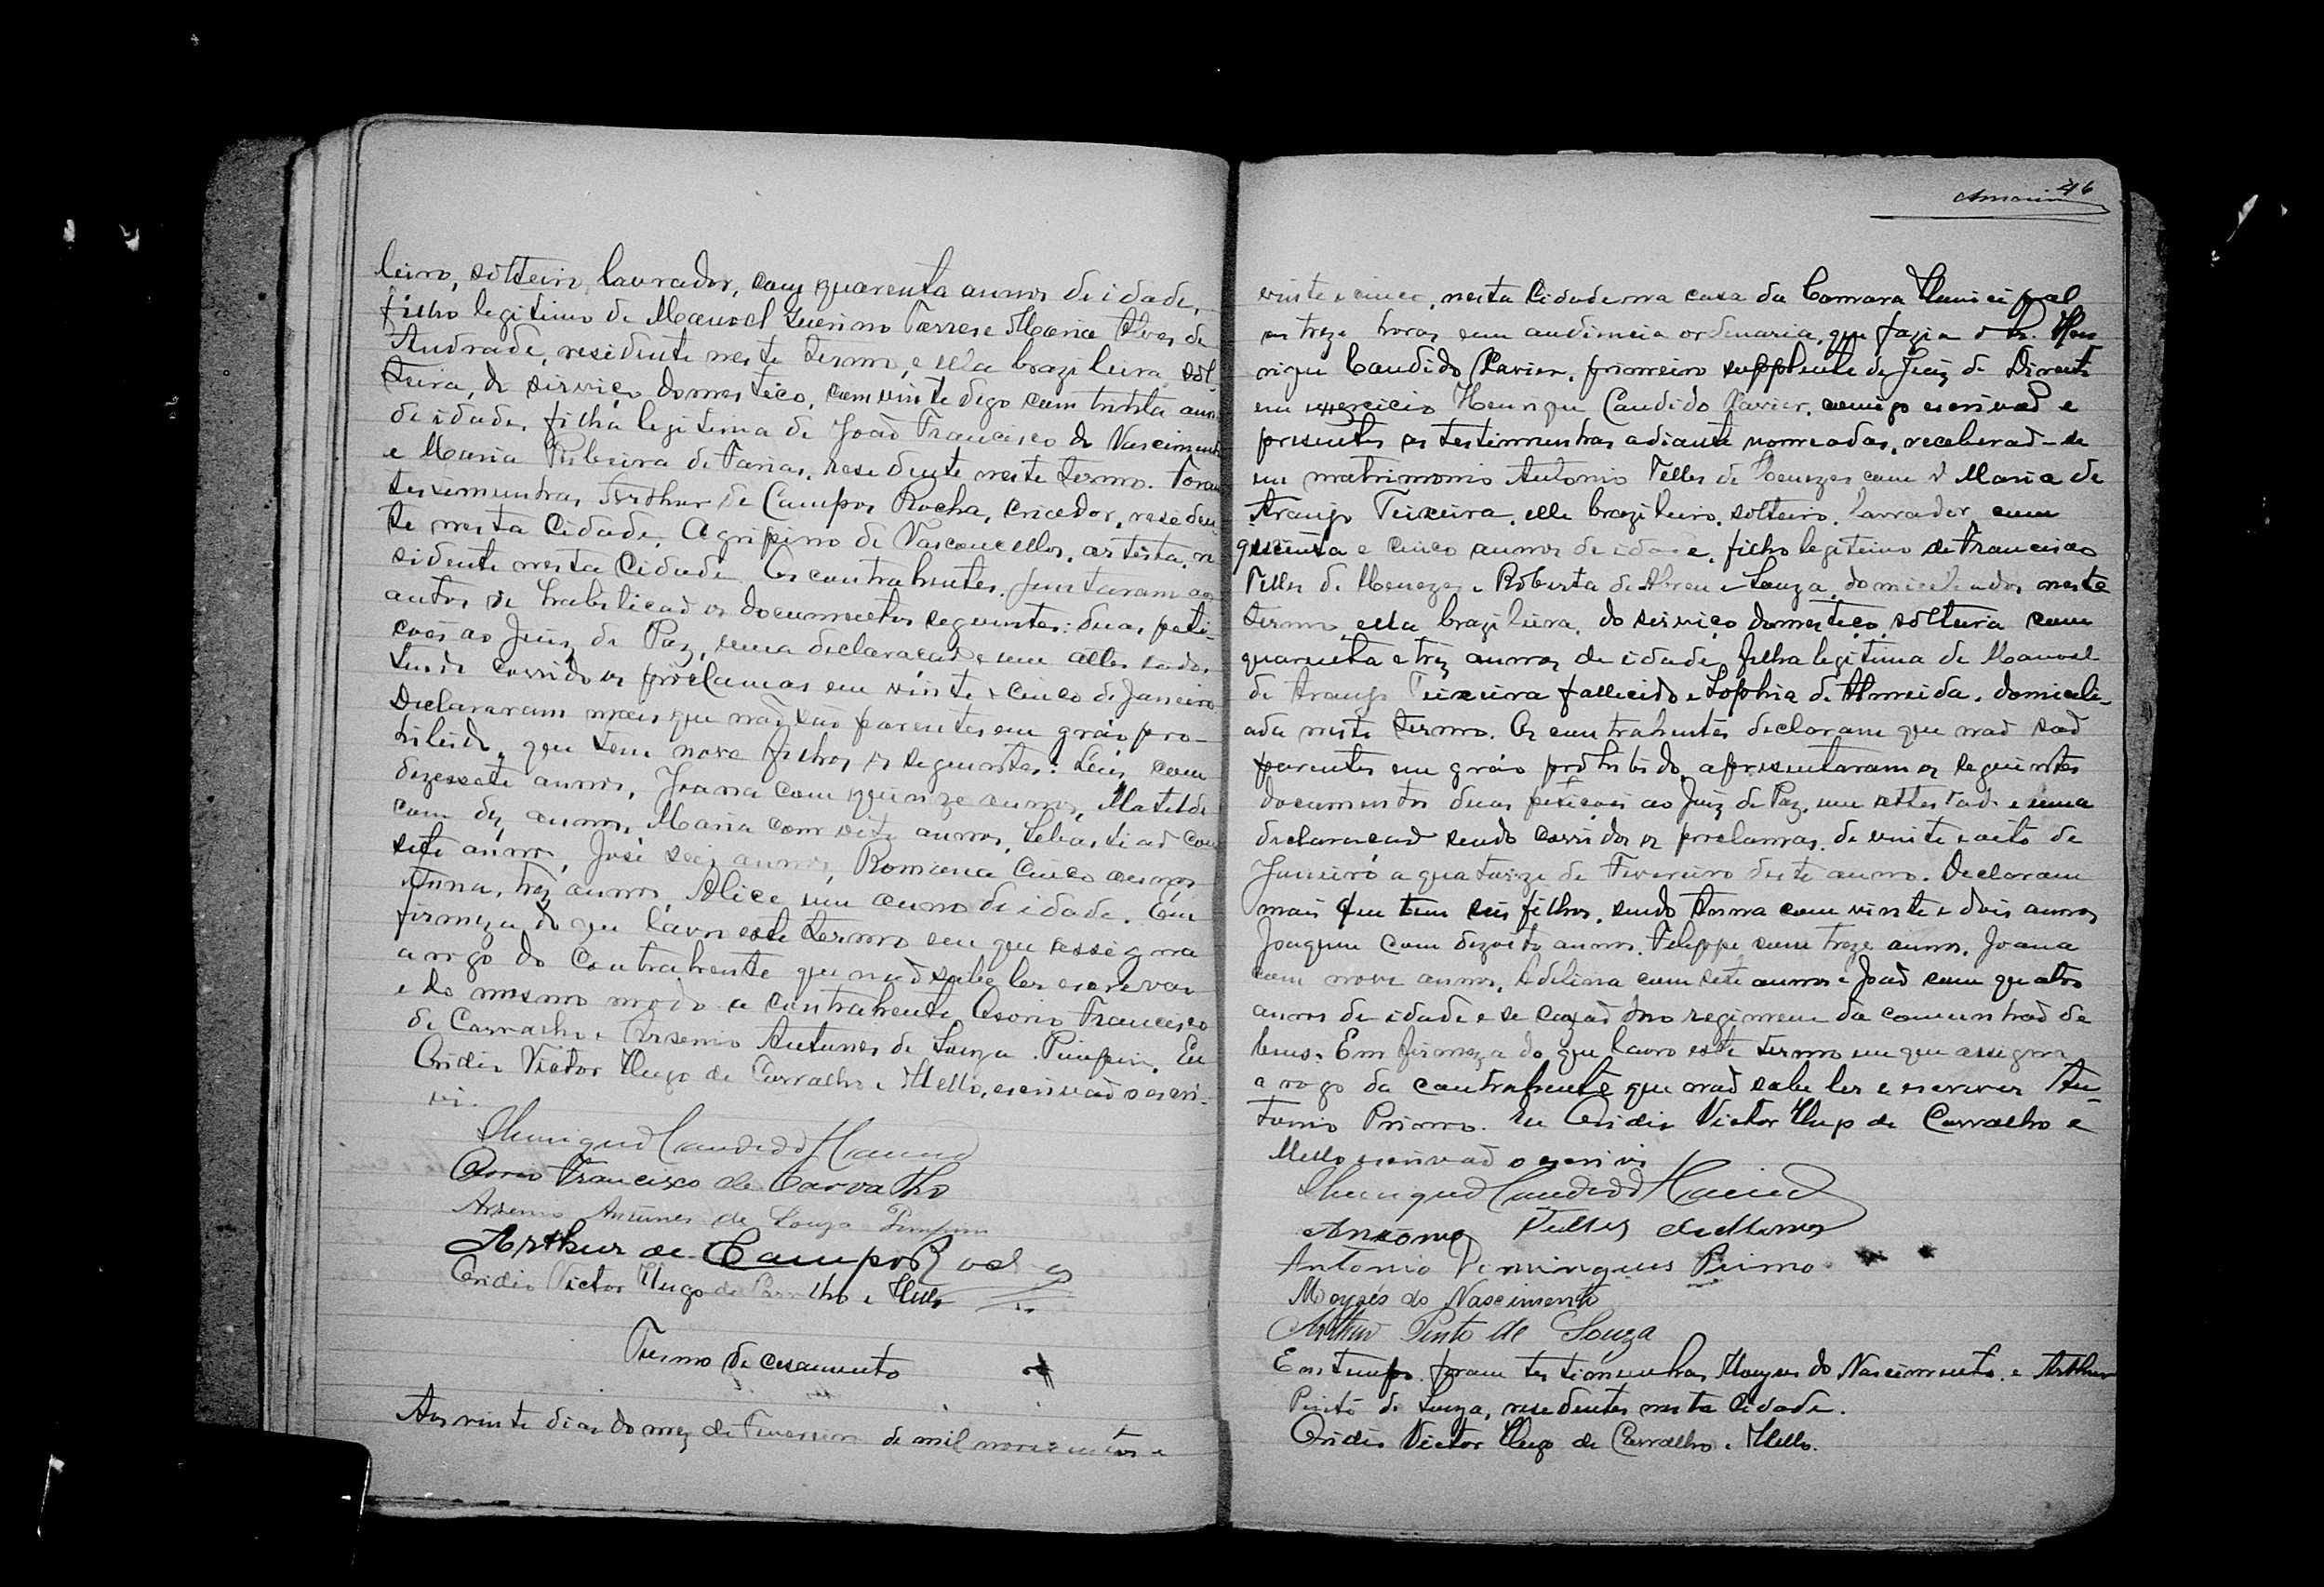 leiro, solteiro, lavrador, com quarenta annos de idade,
filho legitimo de Manoel Guerino Torres e Maria Alves de
Andrade, residente neste termo, e ella brazileira sol-
teira, de serviço domestico, com vinte digo com trinta annos
de idade, filha legitima de João Francisco do Nascimento
e Maria Ribeira de Farias, residente neste termo. Foram
testemunhas Arthur de Campos Rocha, criador, residen-
te nesta Cidade, Agripino de Vasconcellos, artista, re
sidente nesta Cidade. Os contrahentes juntaram aos
autos de habilicaõ os documentos seguintes: duas peti-
ções ao Juiz de Paz, uma declaracaõ e um attestado,
tendo corrido os proclamas em vinte e cinco de Janeiro.
Declararam mais que não são parentes em gráo pro-
hibido, que tem nove filhos os seguintes: Luiz, com
dezessete annos, Joana com quinze annos, Matilde
com dez annos, Maria com oito annos, Sebastiaõ com
sete annos, José seis annos, Romana cinco annos
Anna, trez annos, Alice um anno de idade. Em
firmeza do que lavro este termo em que assigna
a rogo do contrahente que naõ sabe ler escrever
e do mesmo modo a contrahente Osorio Francisco
de Carvalho e Arsenio Antunes de Souza Pimpim. Eu
Ovidio Victor Hugo de Carvalho e Mello, escrivaõ o escri-
vi.
Henrique Candido Xavier
Osorio Francisco de Carvalho
Arsenio Antunes de Souza Pimpim
Arthur de Campos Rocha
Ovidio Victor Hugo de Carvalho e Mello
Termo de casamento
Aos vinte dias do mez de Fevereiro de mil novecentos e
46
Amorim
vinte e cinco, nesta Cidade na casa da Camara Municipal
as treze horas em audiencia ordinaria, que fazia o Dr. Hen
rique Candido Xavier, primeiro supplente de Juiz de Direito
em exercicio Henrique Candido Xavier, comigo escrivaõ e
presentes as testimunhas adiante nomeadas, receberaõ-se
em matrimonio Antonio Telles de Menezes com D Maria de
Araujo Teixeira, elle brazileiro, solteiro, lavrador com
e cinco annos de idade, filho legitimo de Francisco
Telles de Menezes e Roberta de Abreu e Souza, domiciliados neste
termo, ella brazileira, do serviço domestico, solteira com
quarenta e trez annos de idade, filha legitima de Manoel
de Araujo Teixeira fallecido e Sophia de Almeida, domicili-
ada neste termo. Os contrahentes declaram que naõ saõ
parentes em gráo prohibido, apresentaram os seguintes
documentos duas petições ao Juiz de Paz, um attestado e uma
declaracaõ sendo corridos os proclamas de vinte e oito de
Janeiro a quatorze de Fevereiro deste anno. Declaram
mais que tem seis filhos, sendo Anna com vinte e dois annos
Joaquim com dezoito annos, Felippe com treze annos, Joana
com nove annos, Adelina com sete annos e Joaõ com quatro
annos de idade e se cazaõ no regimem da comunhaõ de
bens. Em firmeza do que lavro este termo em que assigna
a rogo da contrahente que naõ sabe ler e escrever An-
tonio Primo. Eu Ovidio Victor Hugo de Carvalho e
Mello escrivaõ o escrivi
Henrique Candido Xavier
Antonio Telles de Menezes
Antonio Domingues Primo
Moysés do Nascimento
Arthur Pinto de Souza
Em tempo. foram testimunhas Moyses do Nascimento e Arthur
Pinto de Souza, residentes nesta Cidade.
Ovidio Victor Hugo de Carvalho e Mello.